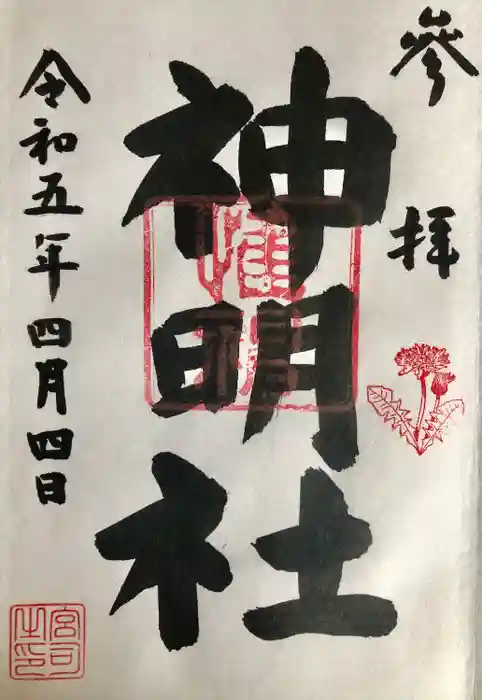 參拝
神明社
令和五年四月四日
宮司之印